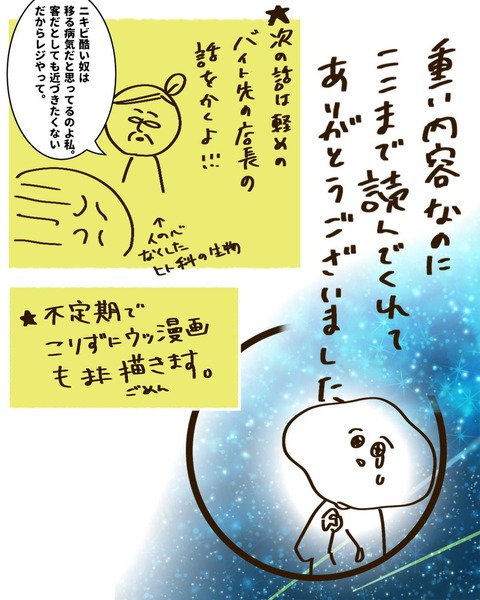 重い内容なのに
ここまで読んでくれて
ありがとうございました
★次の話は軽めの
バイト先の店長の
話をかくよ!!!
ニキビ酷い奴は
移る病気だと思ってるのよ私。
客だとしても近づきたくない
だからレジやって。
↑
人の心
なくした
ヒト科の生物
★不定期で
こりずにウッ漫画
もまた描きます。
ごめん